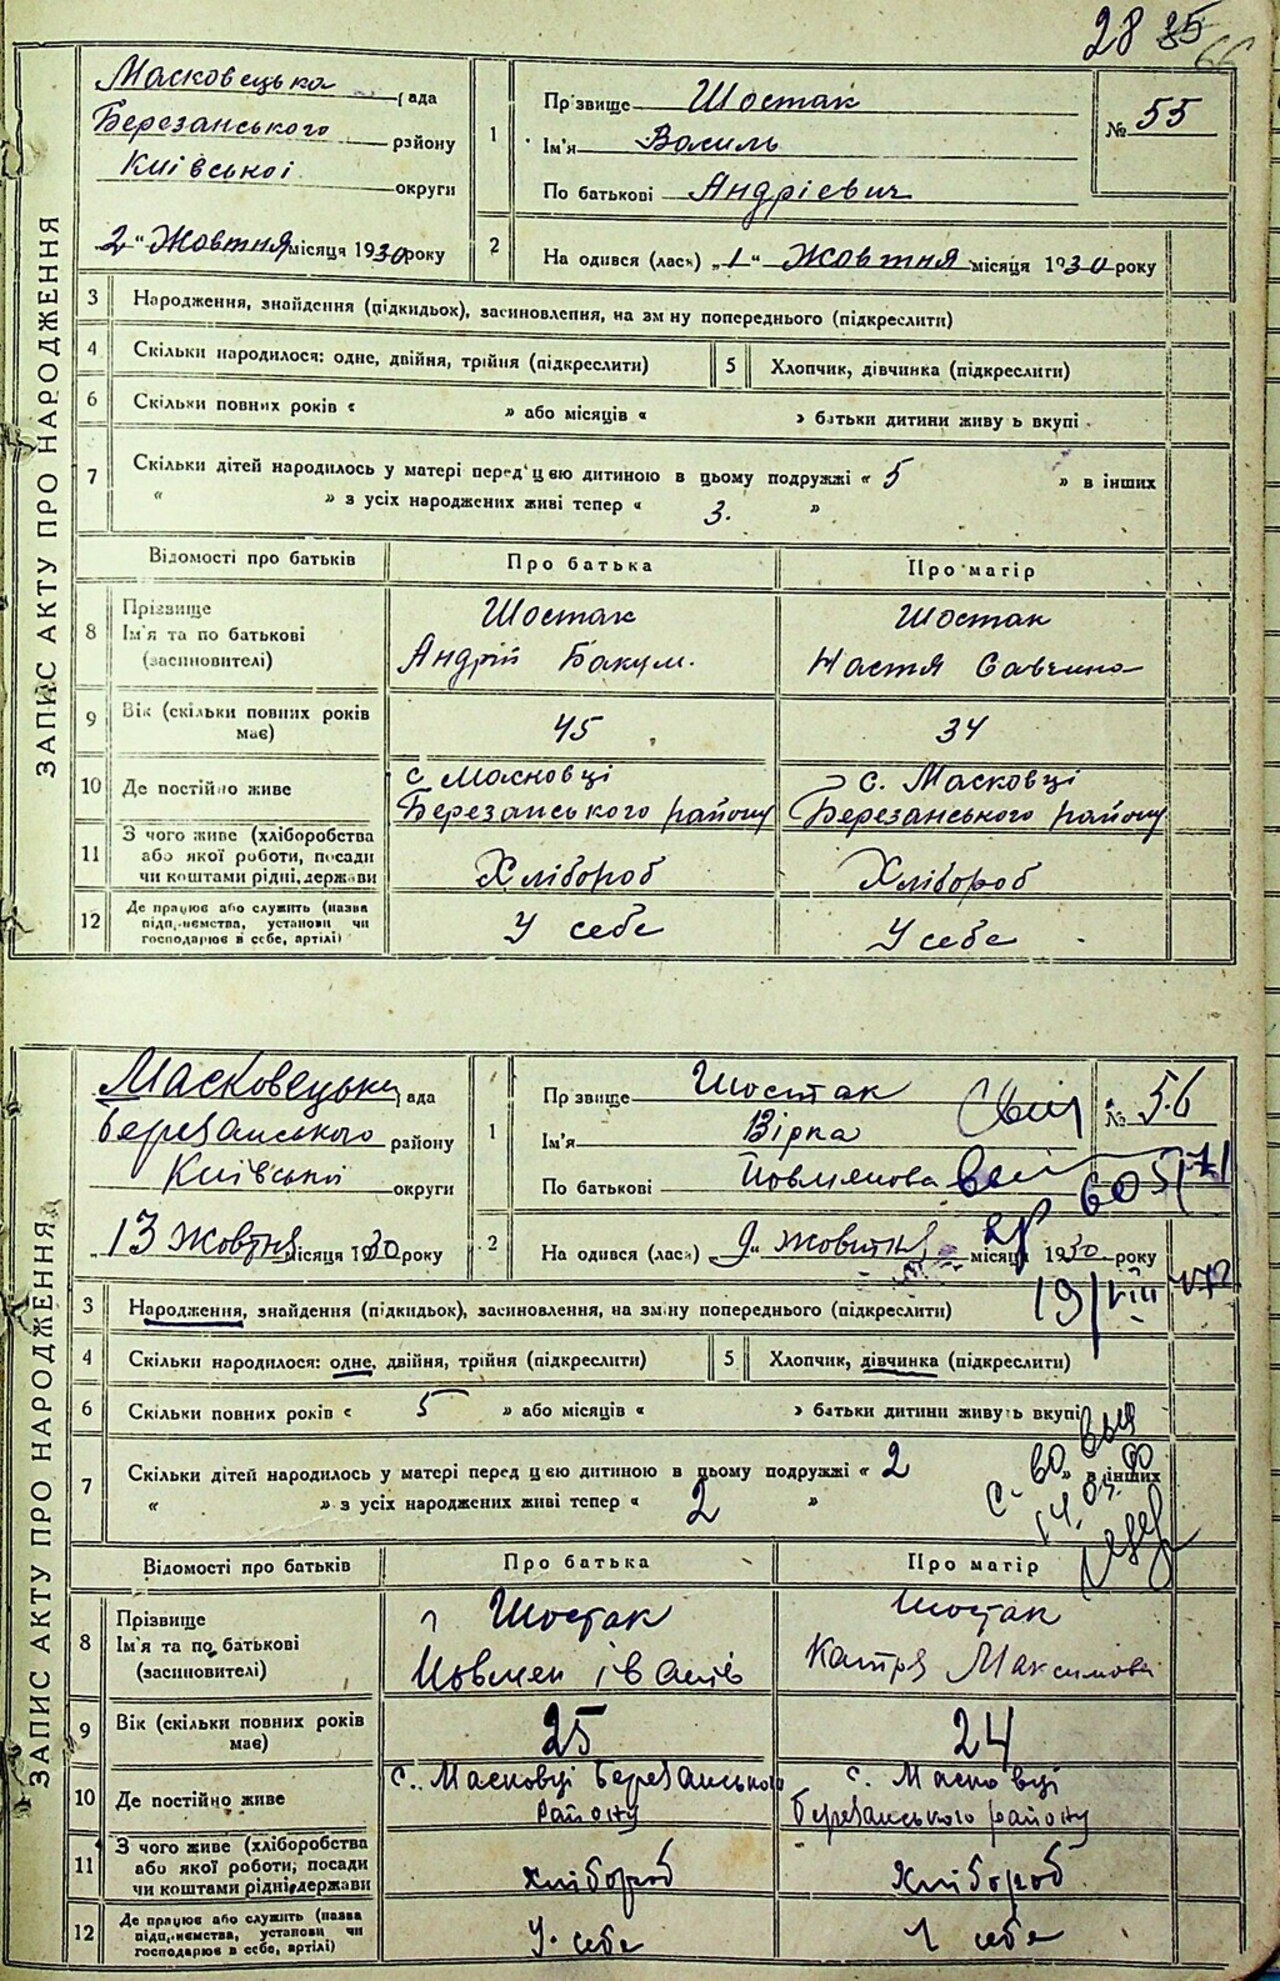 28 35
66
ЗАПИС АКТУ ПРО НАРОДЖЕННЯ
Масковецька рада
Березанського району
Київської округи
"2" Жовтня місяця 1930 року
1
Прізвище Шостак
Ім'я Василь
По батькові Андрієвич
№ 55
2
На одився (лася) "1" Жовтня місяця 1930 року
3 Народження, знайдення (підкидьок), засиновлення, на зміну попереднього (підкреслити)
4 Скільки народилося: одне, двійня, трійня (підкреслити) 5 Хлопчик, дівчинка (підкреслити)
6 Скільки повних років « » або місяців « » батьки дитини живуть вкупі
7 Скільки дітей народилось у матері перед цією дитиною в цьому подружжі « 5 » в інших
« » з усіх народжених живі тепер « 3. »
Відомості про батьків Про батька Про матір
8 Прізвище Ім'я та по батькові (засиновителі)
Шостак Андрій Бакум.
Шостак Настя Савчина
9 Вік (скільки повних років має) 45 34
10 Де постійно живе
с Масковці Березанського району
с. Масковці Березанського району
11 З чого живе (хліборобства або якої роботи, посади чи коштами рідні, держави
Хлібороб Хлібороб
12 Де працює або служить (назва підприємства, установи чи господарює в себе, артілі)
У себе У себе
ЗАПИС АКТУ ПРО НАРОДЖЕННЯ
Масковецька рада
Березанського району
Київської округи
"13 Жовтня місяця 1930 року
1
Прізвище Шостак
Ім'я Вірка
По батькові Йовменова
№ 56
2
На одився (лася) "9" жовтня місяця 1930 року
19/VIII
3 Народження, знайдення (підкидьок), засиновлення, на зміну попереднього (підкреслити)
4 Скільки народилося: одне, двійня, трійня (підкреслити) 5 Хлопчик, дівчинка (підкреслити)
6 Скільки повних років « 5 » або місяців « » батьки дитини живуть вкупі
7 Скільки дітей народилось у матері перед цією дитиною в цьому подружжі « 2 » в інших
« » з усіх народжених живі тепер « 2 »
Відомості про батьків Про батька Про матір
8 Прізвище Ім'я та по батькові (засиновителі)
Шостак Йовмен Іванів
Шостак Катря Максимова
9 Вік (скільки повних років має) 25 24
10 Де постійно живе
с. Масковці Березанського району
с. Масковці Березанського району
11 З чого живе (хліборобства або якої роботи, посади чи коштами рідні, держави
хлібороб Хлібороб
12 Де працює або служить (назва підприємства, установи чи господарює в себе, артілі)
У себе У себе